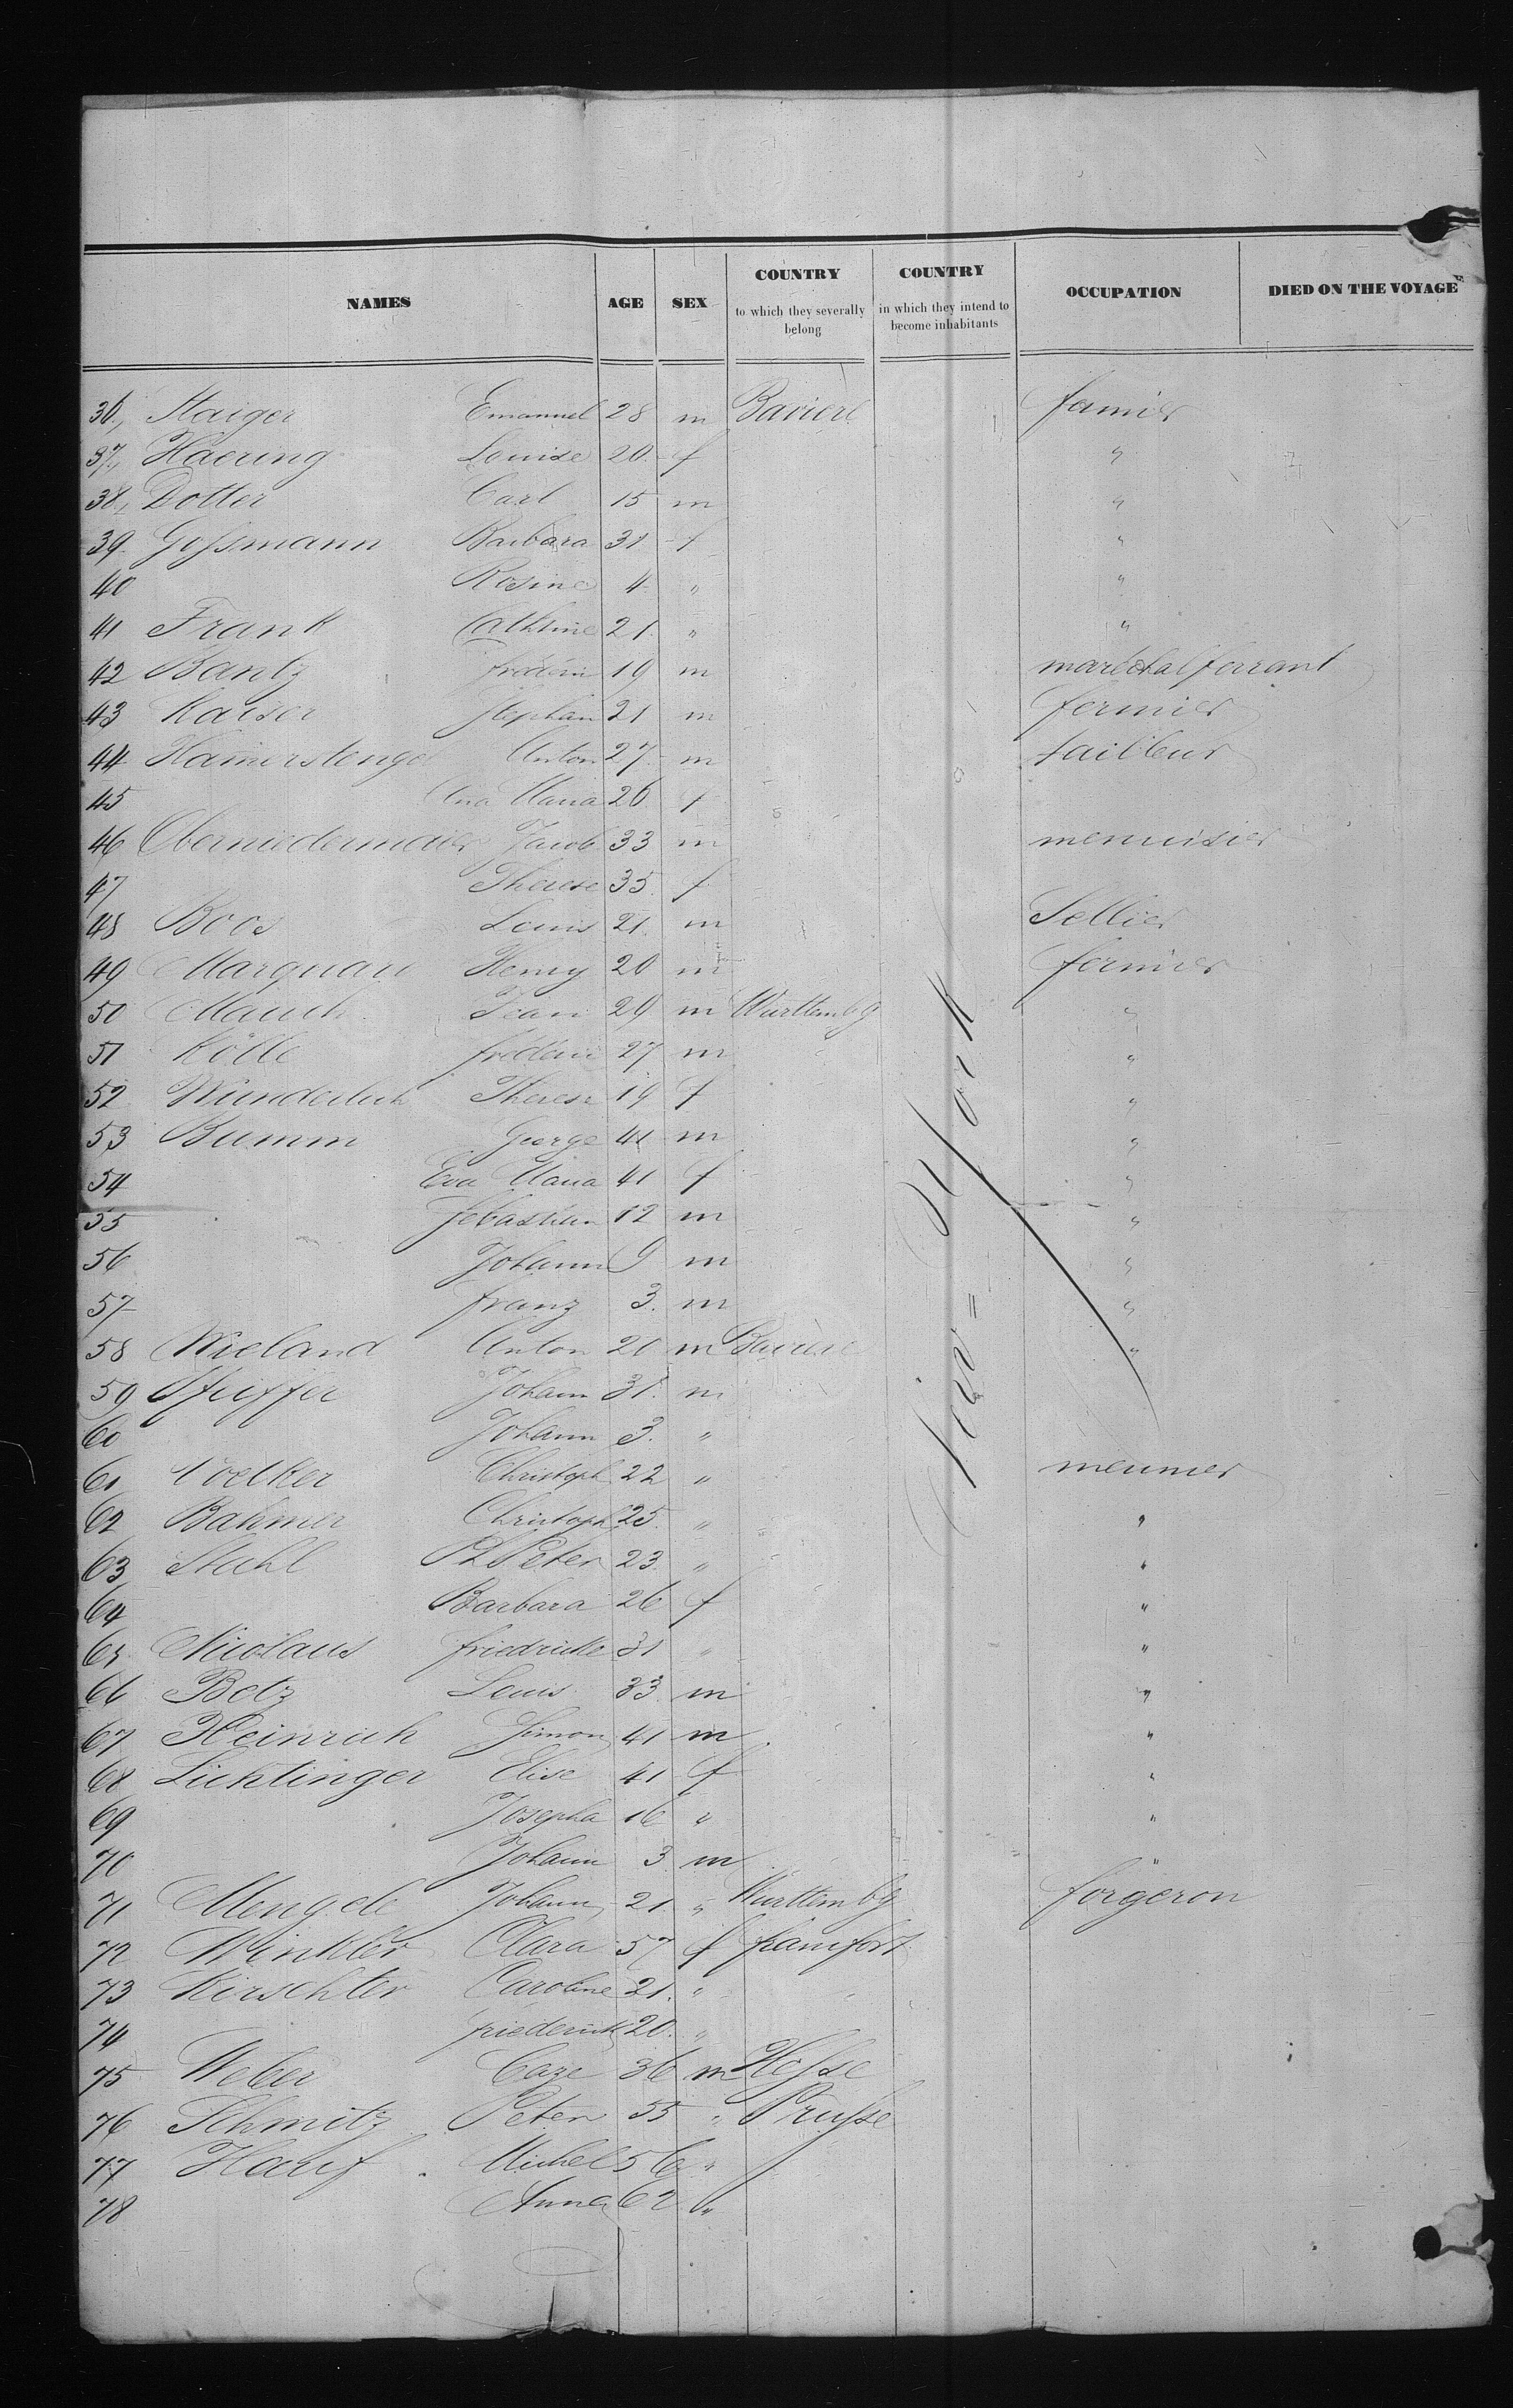 NAMES AGE SEX COUNTRY to which they severally belong COUNTRY in which they intend to become inhabitants OCCUPATION DIED ON THE VOYAGE
36, Staiger Emanuel 28 m Baviere famier
37, Haering Louise 20 f "
38, Dotter Carl 15 m "
39 Gossmann Barbara 31 f "
40 Rosine 4 " "
41 Frank Cathrine 21 " "
42 Bantz frederic 19 m marechal ferrant
43 Kaiser Stephan 21 m fermier
44 Hamerstenger Anton 27 m tailleur
45 Ana Maria 26 f
46 Oberniedermaier Jacob 33 m menuisier
47 Therese 35 f
48 Boos Louis 21 m Sellier
49 Marquard Henry 20 m fermier
50 Mauch Jean 29 m Württembg "
51 Kölle frederic 27 m "
52 Wunderlich Therese 19 f "
53 Bumm George 41 m "
54 Eva Maria 41 f "
55 Sebastian 12 m "
56 Johann 9 m "
57 franz 3. m "
58 Wieland Anton 20 m Baviere "
59 Pfeiffer Johann 31. m
60 Johann 3. "
61 Voelker Christoph 22 " meunier
62 Bahmer Christoph 25. " "
63 Stahl Ph Peter 23 " "
64 Barbara 26 f "
65 Nicolaus friedricke 31 " "
66 Betz Louis 33 m "
67 Heinrich Simon 41 m "
68 Lichtinger Elise 41 f "
69 Josepha 16 " "
70 Johann 3 m
71 Mengele Johann 21 " Württembg forgeron
72 Winkler Clara 57 f francfort
73 Kirschler Caroline 21. " "
74 friederick 20. "
75 Weber 36 m Hesse
76 Schmitz Peter 55 " Prusse
77 Hauf Michel 56 "
78 Anna 62 "
New = York